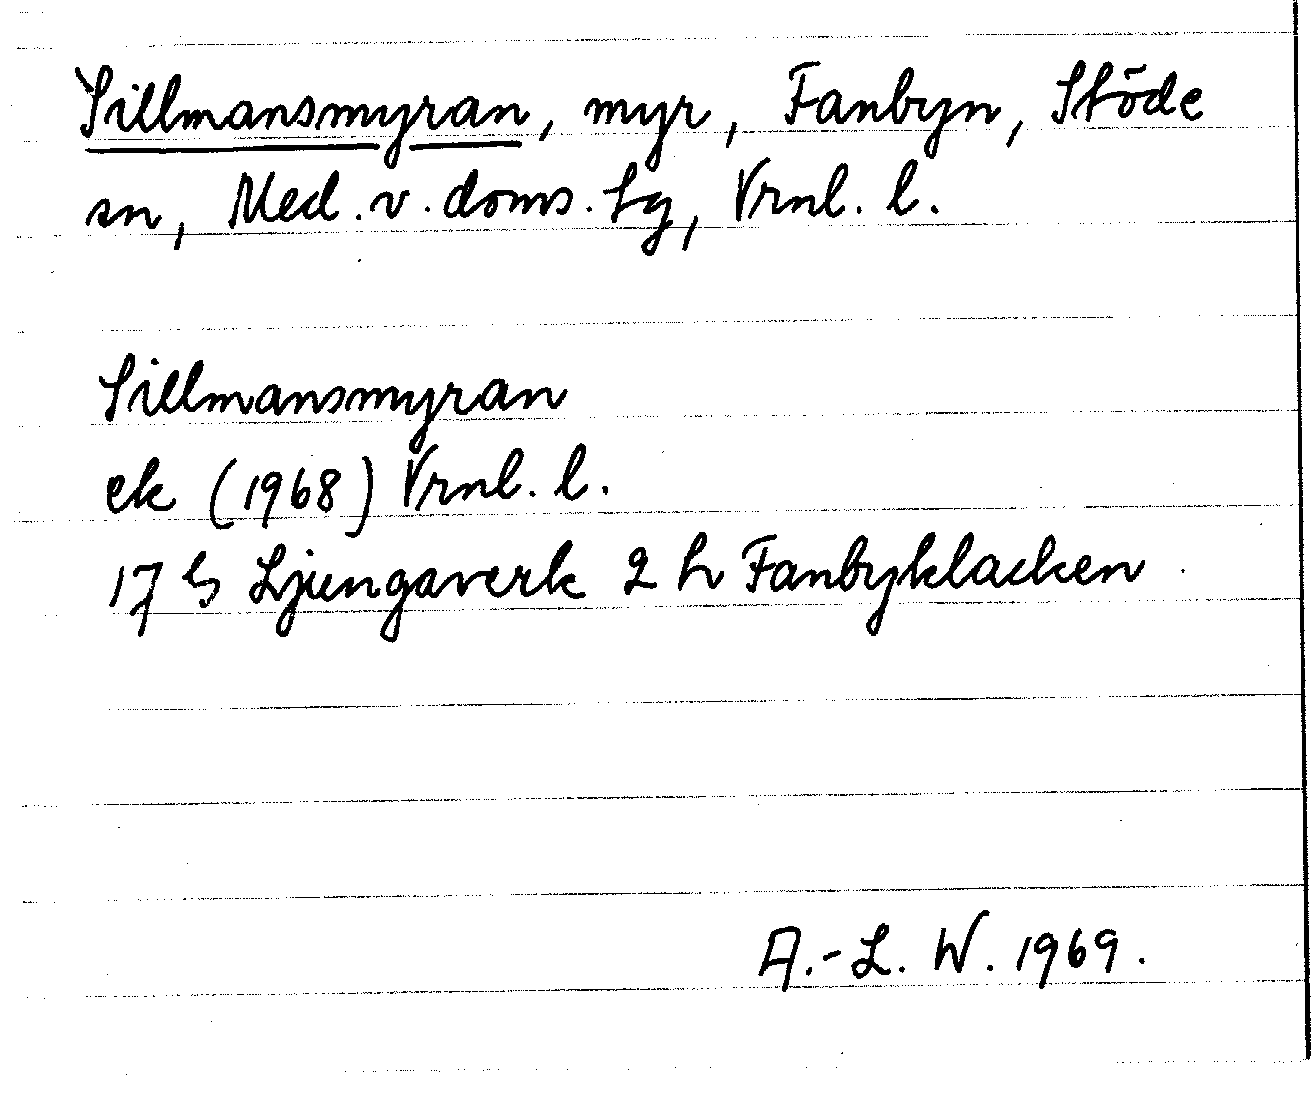 Sillmansmyran, myr, Fanbyn, Stöde
sn, Med. v. doms. tg, Vrnl. l.
Sillmansmyran
ek (1968) Vrnl. l.
17 G Ljungaverk 2 h Fanbyklacken
A.-L. W. 1969.